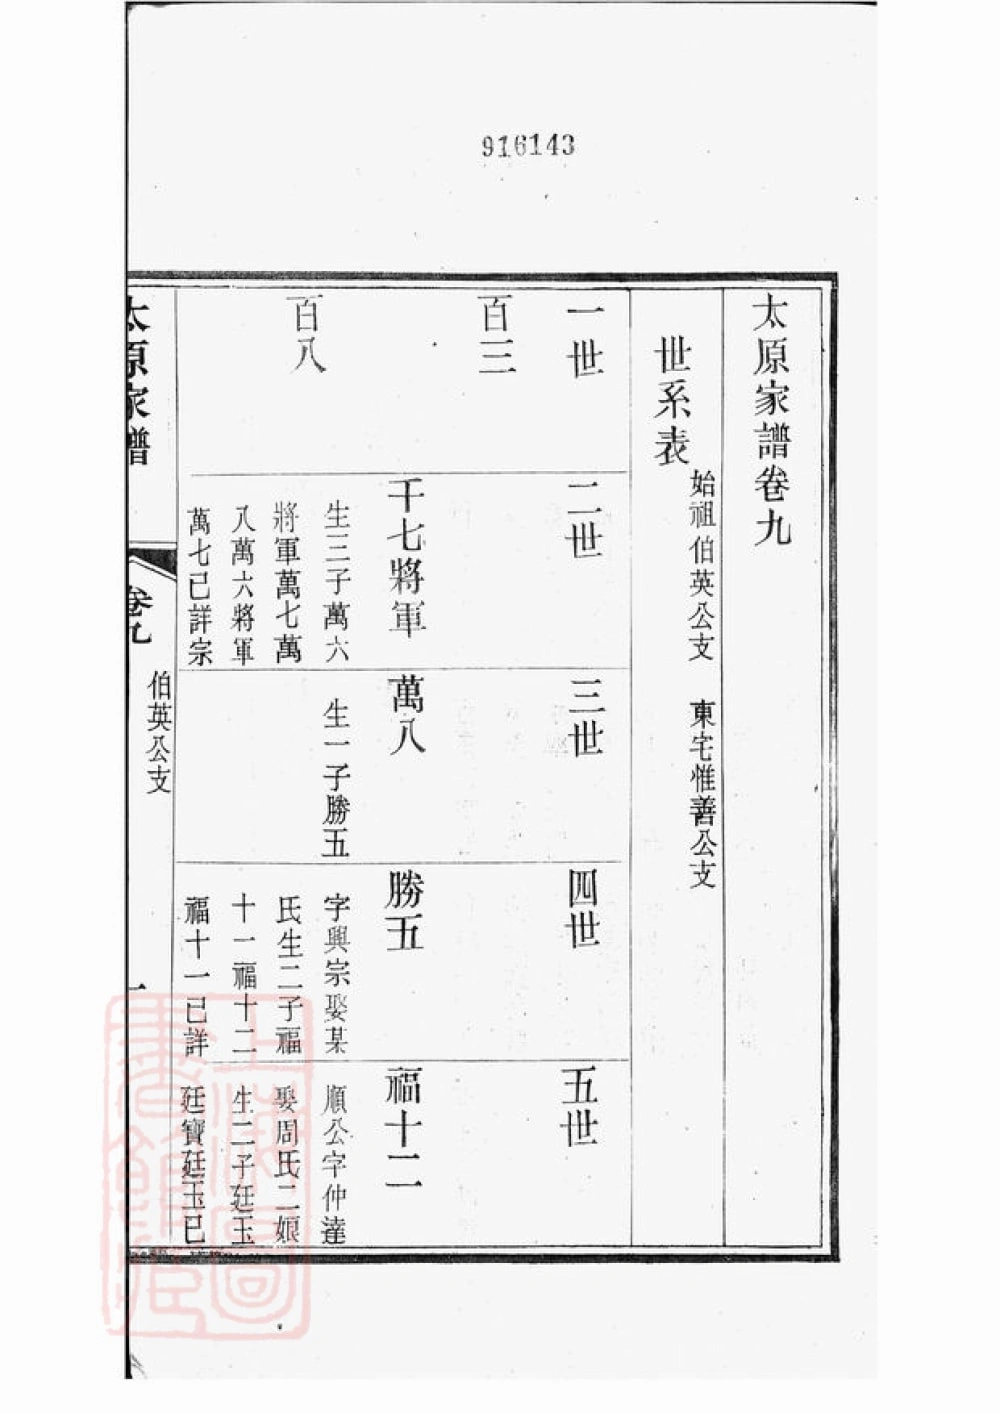 916143
太原家譜卷九
始祖伯英公支 東宅惟善公支
世系表
一世
二世
三世
四世
五世
百三
千七將軍
生三子萬六
將軍萬七萬
八萬六將軍
萬七已詳宗
萬八
生一子勝五
勝五
字興宗娶某
氏生二子福
十一福十二
福十一已詳
福十二
順公字仲達
娶周氏二娘
生二子廷玉
廷寶廷玉已
百八
太原家譜
卷九
伯英公支
一
上海圖書館藏